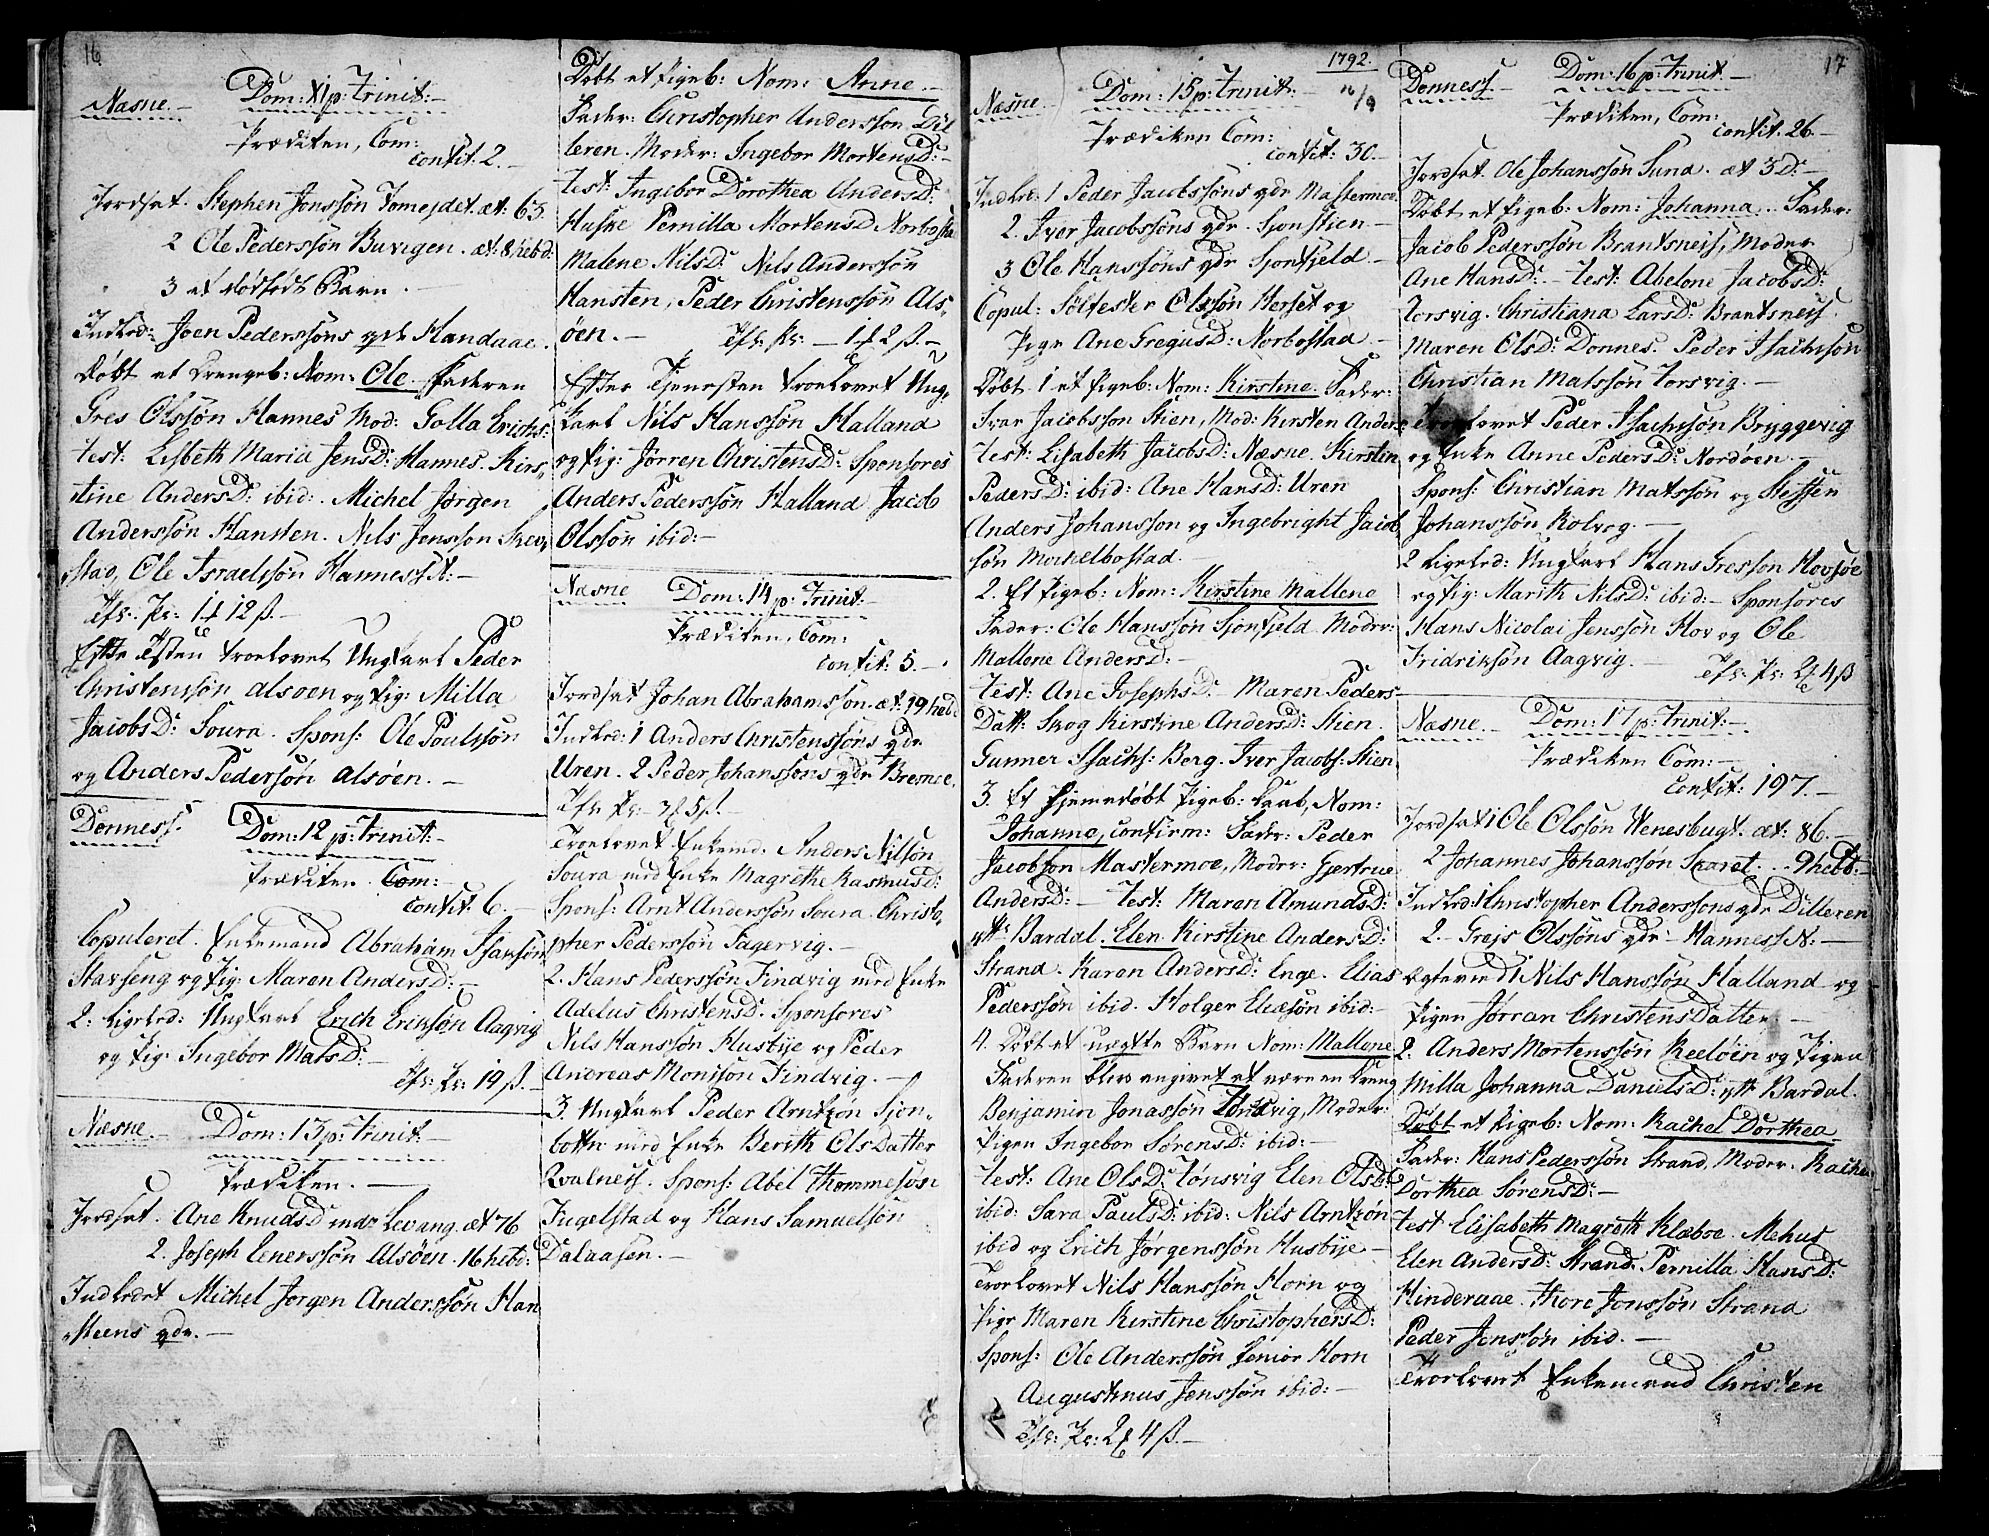 16
Næsne.- Dom: XI p: Trinit:-
Prædiken, Com:
confit. 2.-
Jordsat. Stephen Jonssøn Tomejdet. æt: 63.
2 Ole Pederssøn Buvigen. æt: 8 hebd:
3 et dødfødt Barn.
Indled: Joen Pederssøns qde Handaae.
Døbt et Drengeb: Nom: Ole. Faderen
Gres Olssøn Hannes Mod: Golla Erichs:
Test: Lisbeth Maria JensD: Hannes. Kirs-
tine AndersD: ibid: Michel Jørgen
Anderssøn Hansten. Nils Jenssøn
stad, Ole Israelssøn Hanness
Tfl: Pr: 1 12 ß.-
Efter Tjen troelovet Ungkarl Peder
Christenssøn Alsøen og Pig: Milla
JacobsD: Soura. Spons: Ole Poulssøn
og Anders Pederssøn Alsøen.-
Dønness. Dom: 12 p: Trinit:-
Prædiken. Com:-
confit: 6.-
Copuleret. Enkemand Abraham Isaksøn
Stavseng og Pig: Maren AndersD:-
2: Ligeled: Ungkarl Erich Eriksøn Aagvig
og Pig: Ingebor MatsD:-
19 ß.-
Næsne.- Dom: 13 p: Trinit:-
Prædiken.-
Jordsat. Ane KnudsD Levang. æt 76
2. Joseph Enerssøn Alsøen. 16 hebd:
Indledet Michel Jørgen Anderssøn Han
steens qde.-
Døbt et Pigeb: Nom: Anne.-
Fader: Christopher Anderssøn Dil
leren. Moder: Ingebor MortensD:-
Test: Ingebor Dorothea AndersD:
Huske Pernilla MortensD Norbosta
Malene NilsD: Nils Anderssøn
Hansten, Peder Christenssøn Als-
øen.- 1 2 ß.-
Efter Tjenesten troelovet Ung-
karl Nils Hanssøn Halland
og Pig: Jørren ChristensD: Sponsores
Anders Pederssøn Halland Jacob
Olssøn ibid:-
Næsne Dom: 14 p: Trinit:-
Prædiken, Com:
confit: 5.-
Jordsat Johan Abrahamssøn. æt: 19 hebd.
Indled: 1 Anders Christenssøns qde
Uren. 2 Peder Johanssøns qde Bresne.
Troelovet Enkemd. Anders Nilsøn
Soura med Enke Magrethe RasmusD:
Spons: Arnt Anderssøn Soura. Christo-
pher Pederssøn Fagervig.-
2. Hans Pederssøn Findvig med Enke
Adelus ChristensD. Sponsores
Nils Hanssøn Husbye og Peder
Andreas Monssøn Findvig.-
3. Ungkarl Peder Arntzøn Sjon-
botn med Enke Berith Ols Datter
Qvalnes. Spons: Abel Thommesøn
Fugelstad og Hans Samuelsøn
Dalaasen.-
1792.
16/9
Næsne Dom: 15 p: Trinit:-
Prædiken Com:
confit: 30.-
Indled: 1 Peder Jacobssøns qde Mastermoe
2. Iver Jacobssøns qde. Sjonstien-
3 Ole Hanssøns qde Sjonfjeld.-
Copul: Sølfester Olssøn Herset og
Pige Ane GregusD: Norbostad.-
Døbt 1 et Pigeb: Nom: Kirstine. Fader:
Ivar Jacobssøn Stien, Mod: Kirsten Anders
Test: Lisabeth JacobsD: Næsne. Kirsten
PedersD: ibid: Ane HansD: Uren
Anders Johanssøn og Ingebright Jacob
søn Mochelbostad.
2. Et Pigeb: Nom: Kirstine Mallene
Fader: Ole Hanssøn Sjonfjeld. Moder:
Mallene AndersD:-
Test: Ane JosephsD:- Maren Peders
Datt: Skog Kirstine AndersD: Stien.
Gunner Isachs: Berg. Iver Jacobs: Stien.
3. Et hjemmedøbt Pigeb: Daab, Nom:
Johanne, confirm: Fader: Peder
Jacobsøn Mastermoe, Moder: Gjertrue
AndersD:- Test: Maren AmundsD:
ytt: Bardal. Elen Kirstine AndersD:
Strand. Karen AndersD: Enge. Elias
Pederssøn ibid. Holger Eliæsøn ibid:-
4. Døbt et uægte Barn Nom: Mallene
Faderen blev angivet at være en Dreng
Benjamin Jonassøn Tønsvig, Moder:
Pigen Ingebor SørensD: ibid:-
Test: Ane OlsD. Tønsvig Elen OlsD:
ibid: Sara PaulsD: ibid: Nils Arntzøn
ibid og Erich Jørgenssøn Husbye-
Troelovet Nils Hanssøn Horn og
Pige Maren Kirstine ChristophersD:
Spons: Ole Anderssøn Senior Horn
Augustinus Jenssøn ibid:-
4 ß.-
17
Dønness.- Dom: 16 p: Trinit.-
Prædiken, Com:
confit. 26.-
Jordsat. Ole Johanssøn Sund. æt 3 D:-
Døbt et Pigeb: Nom: Johanna. Fader:
Jacob Pederssøn Brantsneis, Moder
Ane HansD:- Test: Abelone JacobsD:
Torsvig. Christiana LarsD: Brantsneis.
Maren OlsD: Dønnes. Peder Isachssøn
Christian Matssøn Torsvig.-
Troelovet Peder Isachssøn Bryggevig
og Enke Anne PedersD: Nordøen.-
Spons: Christian Matssøn og Steffen
Johanssøn Kolvig.-
2 Ligeled: Ungkarl Hans Gressøn Hovsøe
og Pig: Marith NilsD: ibid:- Sponsores
Hans Nicolai Jenssøn Hov og Ole
Fridriksøn Aagvig.- 4 ß
Næsne.- Dom: 17 p: Trinit:-
Prædiken Com:-
confit: 197.-
Jordsat 1 Ole Olssøn Wenesbugt. æt: 86.-
2 Johannes Johanssøn Skaret. . 9 hebd:-
Indled: 1 Christopher Anderssøns qde Dilleren
2.- Grejs Olssøns qde- Hanness
Ægteviet 1 Nils Hanssøn Halland og
Pigen Jørran Christens Datter-
2. Anders Mortenssøn Reeløen og Pigen
Milla Johanna DanielsD: ytt Bardal.
Døbt et Pigeb: Nom: Rachel Dorthea
Fader: Hans Pederssøn Strand. Moder. Rachel
Dorthea SørensD:-
Test Elisabeth Magreth Klæboe. Mehus
Elen AndersD: Strand. Pernilla HansD:
Hinderaae. Thore Jonssøn Strand
Peder Jenssøn ibid.-
Troelovet Enkemand Christen